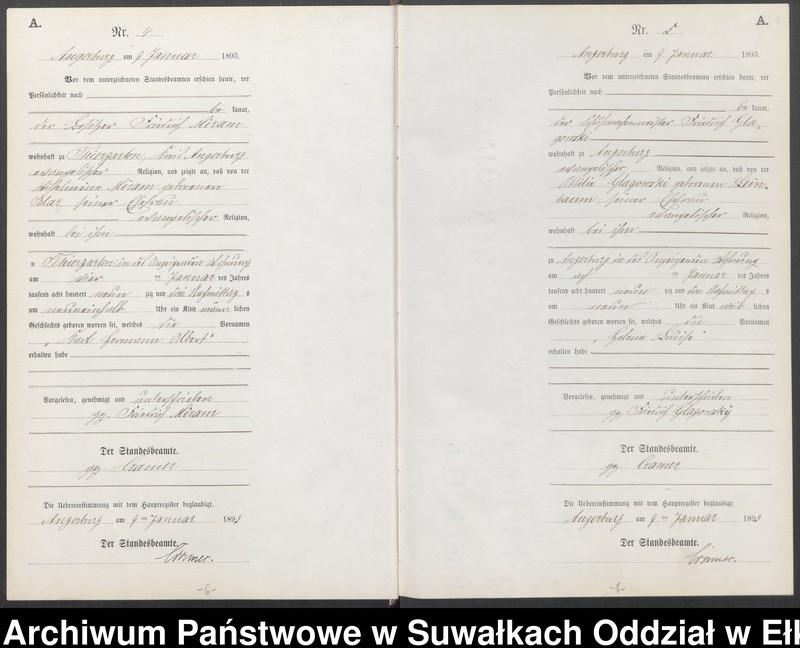 A.
Nr. 4
Angerburg am 9 Januar 1893.
Vor dem unterzeichneten Standesbeamten erschien heute, der
Persönlichkeit nach
be kannt,
der Besitzer Friedrich Miram
wohnhaft zu Thiergarten, Kreis Angerburg
evangelischer Religion, und zeigte an, daß von der
Wilhelmine Miram geborenen
seiner Ehefrau
evangelischer Religion,
wohnhaft bei ihm
u Thiergarten in der Wohnung
am vier ten Januar des Jahres
tausend acht hundert neun zig und drei Vormittag s
um Uhr ein Kind männ lichen
Geschlechts geboren worden sei, welches die Vornamen
„Karl Hermann Albert“
erhalten habe
Vorgelesen, genehmigt und unterschrieben
gz. Friedrich Miram
Der Standesbeamte.
gz Cramer
Die Uebereinstimmung mit dem Hauptregister beglaubigt.
Angerburg am 9 ten Januar 1893
Der Standesbeamte.
Cramer.
-6-
A.
Nr. 5
Angerburg am 9 Januar 1893.
Vor dem unterzeichneten Standesbeamten erschien heute, der
Persönlichkeit nach
be kannt,
der Friedrich Gla-
gowski
wohnhaft zu Angerburg
evangelischer Religion, und zeigte an, daß von der
Glagowski geborenen Lein-
baum, seiner Ehefrau
evangelischer Religion,
wohnhaft bei ihm
zu Angerburg in der Wohnung
am ten Januar des Jahres
tausend acht hundert neun zig und drei Vormittag s
um neun Uhr ein Kind weib lichen
Geschlechts geboren worden sei, welches die Vornamen
„Helene Louise“
erhalten habe
Vorgelesen, genehmigt und unterschrieben
gz Friedrich Glagowsky
Der Standesbeamte.
gz Cramer
Die Uebereinstimmung mit dem Hauptregister beglaubigt.
Angerburg am 9 ten Januar 1893
Der Standesbeamte.
Cramer.
Archiwum Państwowe w Suwałkach Oddział w Ełk